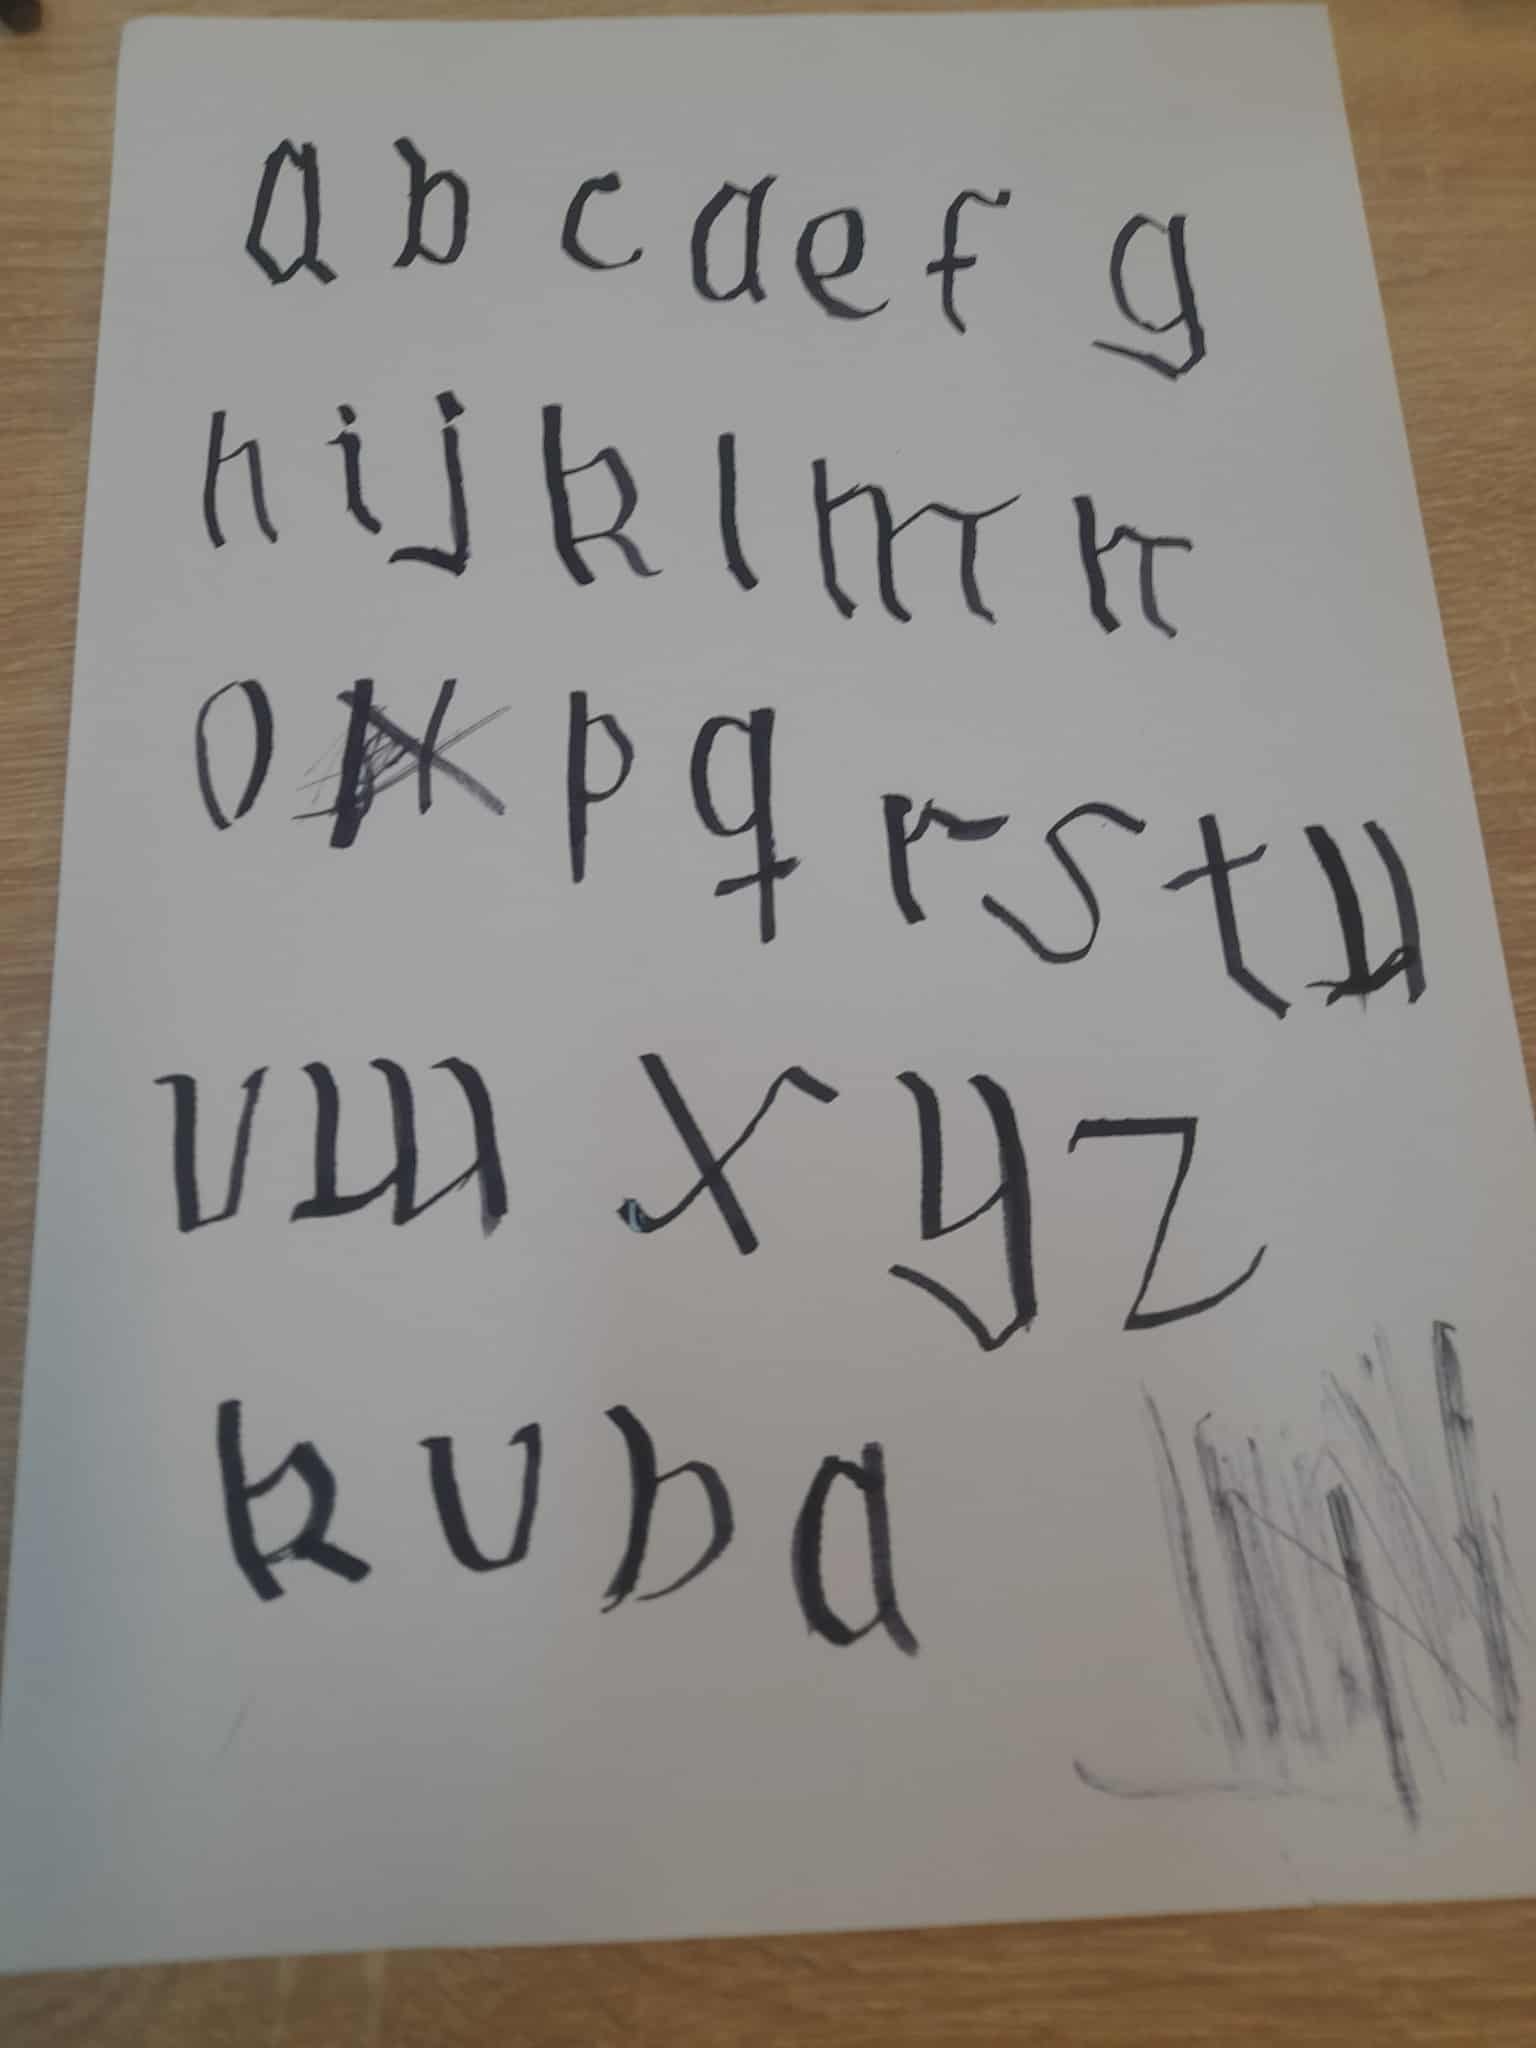 a b c d e f g
h i j k l m n
o p q r s t u
v w x y z
k u b a